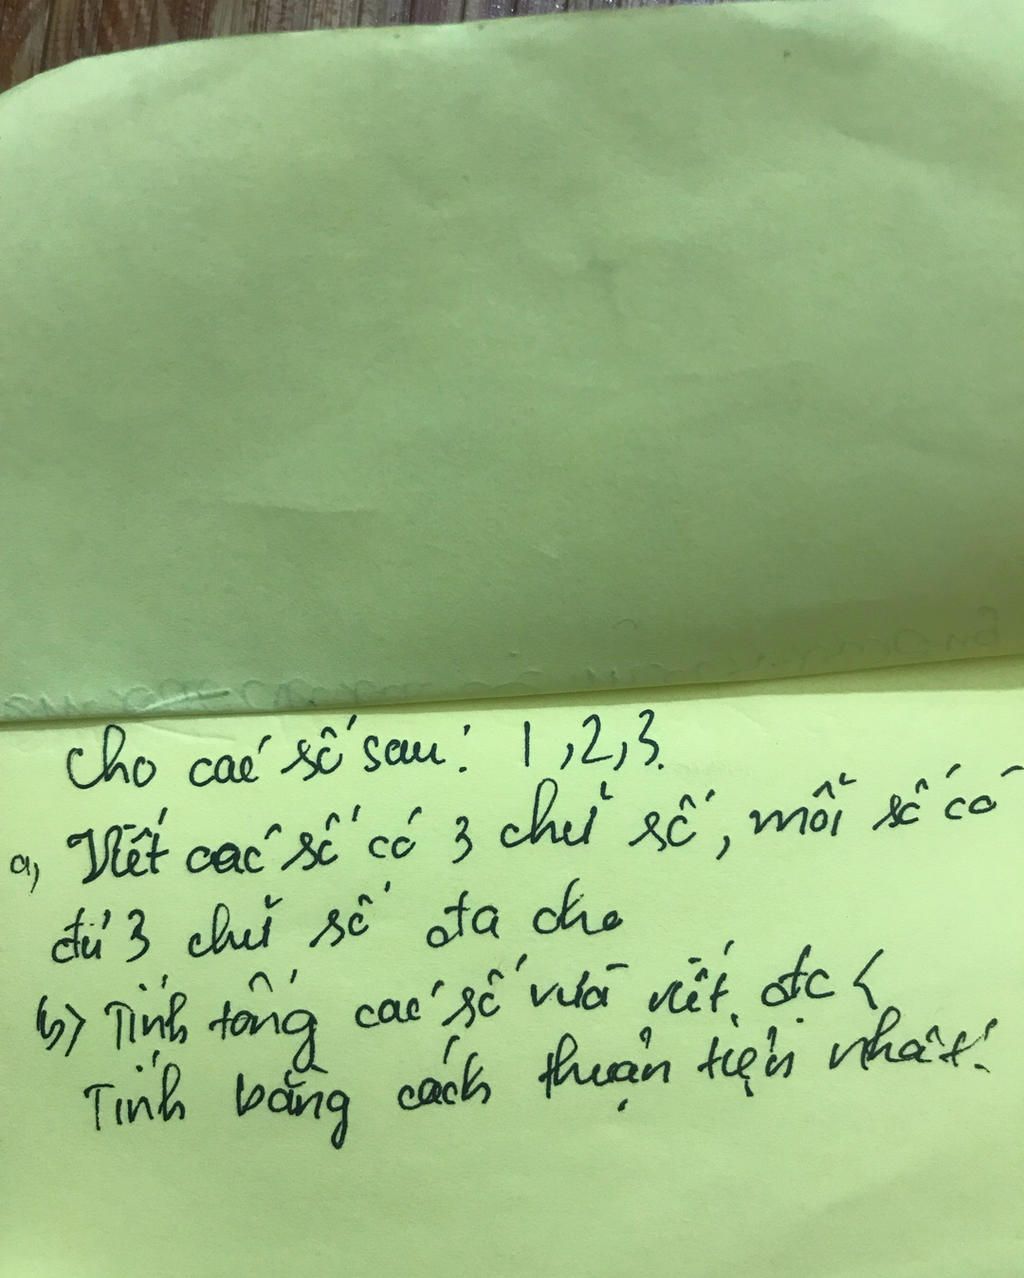 Cho các số sau: 1,2,3.
a, Viết các số có 3 chữ số, mỗi số có
đủ 3 chữ số đã cho
b) Tính tổng các số vừa viết đc (
Tính bằng cách thuận tiện nhất.